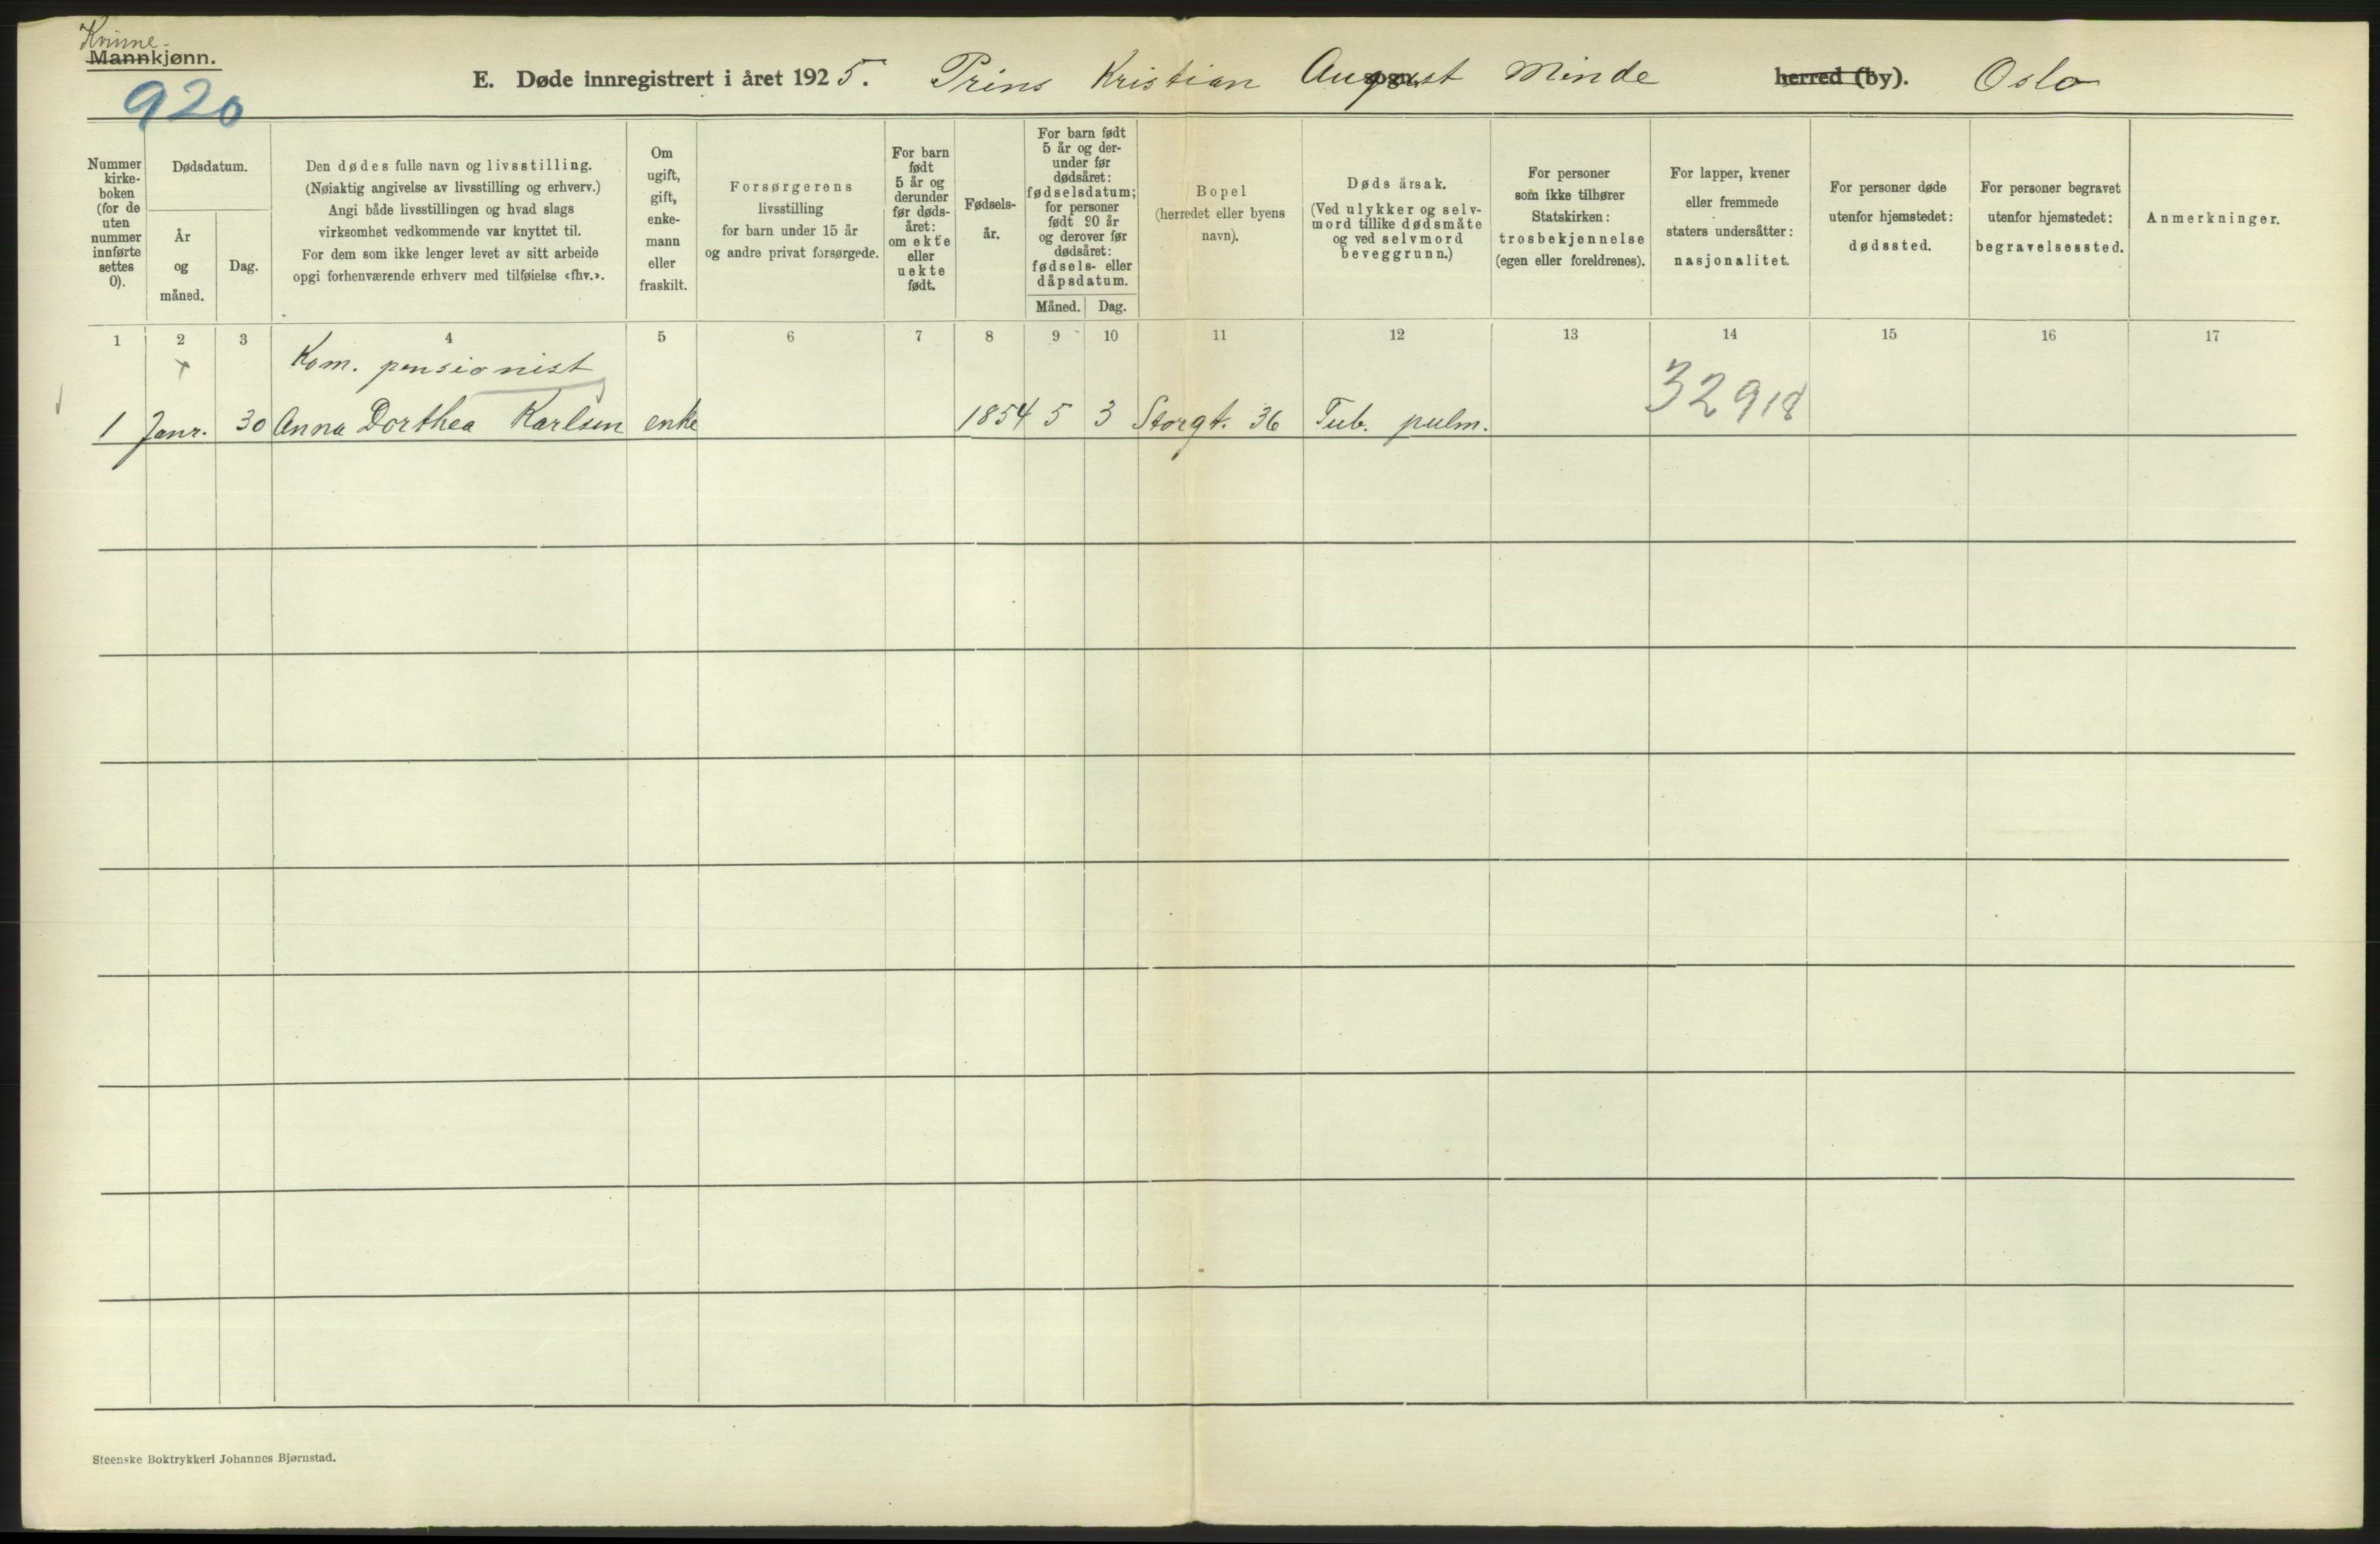 Kvinne-
Mannkjønn.
920
E. Døde innregistrert i året 1925. Prins Kristian August Minde herred (by). Oslo
Nummer
kirke-
boken
(for de
uten
nummer
innførte
settes
0).
Dødsdatum.
År
og
måned.
Dag.
Den dødes fulle navn og livsstilling.
(Nøiaktig angivelse av livsstilling og erhverv.)
Angi både livsstillingen og hvad slags
virksomhet vedkommende var knyttet til.
For dem som ikke lenger levet av sitt arbeide
opgi forhenværende erhverv med tilføielse «fhv.».
Om
ugift,
gift,
enke-
mann
eller
fraskilt.
Forsørgerens
livsstilling
for barn under 15 år
og andre privat forsørgede.
For barn
født
5 år og
derunder
før døds-
året:
om ekte
eller
uekte
født.
Fødsels-
år.
For barn født
5 år og der-
under før
dødsåret:
fødselsdatum;
for personer
født 90 år
og derover før
dødsåret:
fødsels- eller
dåpsdatum.
Måned. Dag.
Bopel
(herredet eller byens
navn).
Dødsårsak.
(Ved ulykker og selv-
mord tillike dødsmåte
og ved selvmord
beveggrunn.)
For personer
som ikke tilhører
Statskirken:
trosbekjennelse
(egen eller foreldrenes).
For lapper, kvener
eller fremmede
staters undersåtter:
nasjonalitet.
For personer døde
utenfor hjemstedet:
dødssted.
For personer begravet
utenfor hjemstedet:
begravelsessted.
Anmerkninger.
1 2 3 4 5 6 7 8 9 10 11 12 13 14 15 16 17
Kom. pensionist
32918
1 Janr. 30 Anna Dorthea Karlsen enke 1854 5 3 Storgt. 36 Tub. pulm.
Steenske Boktrykkeri Johannes Bjørnstad.